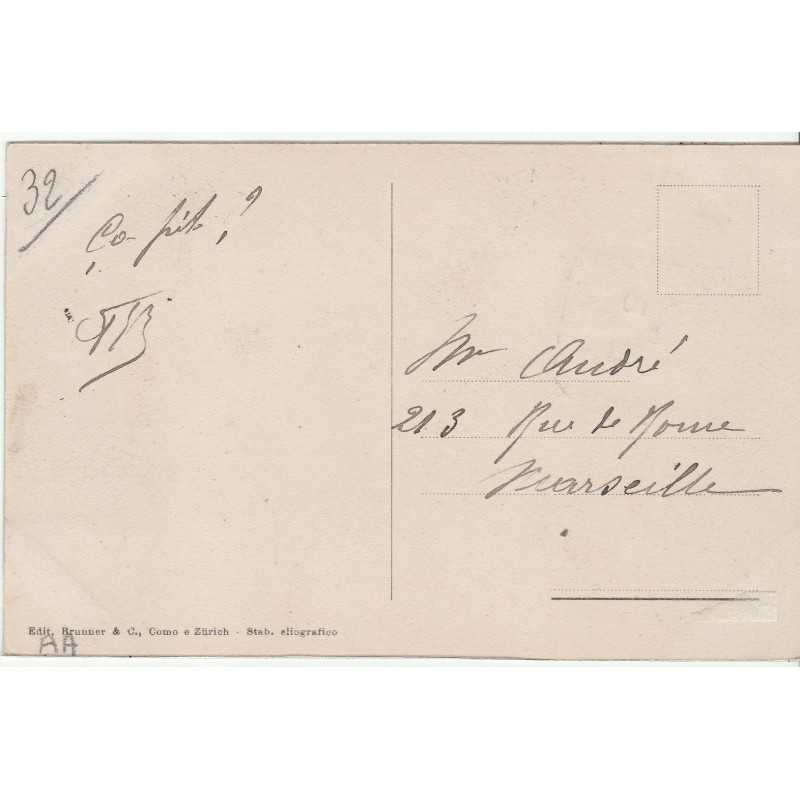 32/
Ça
Mr André
213 Rue de Rome
Marseille
Edit. Brunner & C., Como e Zürich - Stab. eliografico
AA